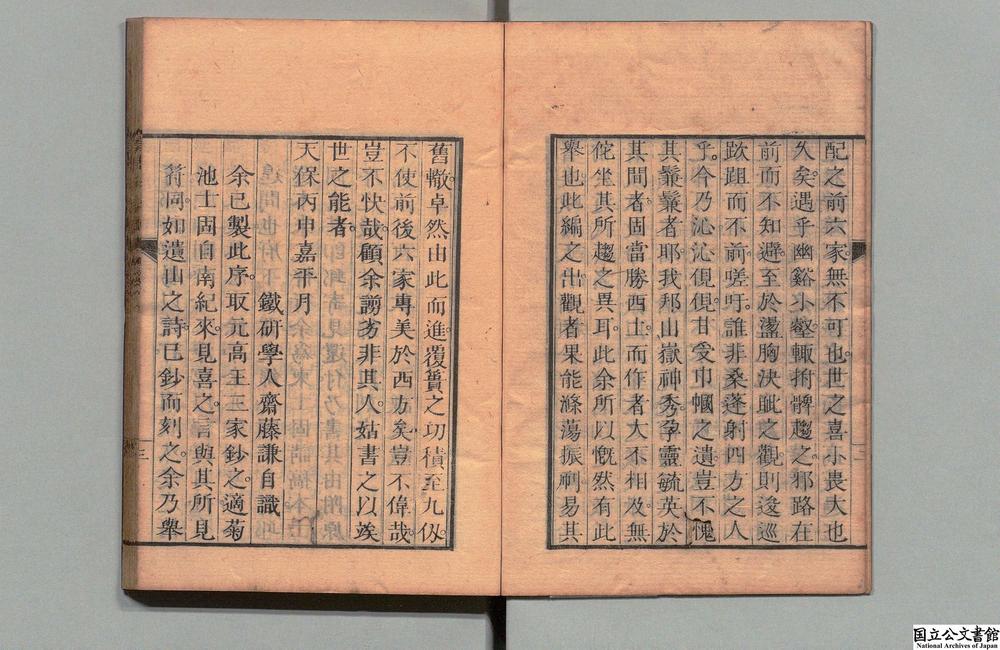 配之前六家無不可也世之喜小畏大也
久矣遇乎幽谿小壑輙拊髀趨之邪路在
前而不知避至於盪胸決眦之觀則逡巡
趑趄而不前嗟吁誰非桑蓬射四方之人
乎今乃沁沁俔俔甘受巾幗之遺豈不愧
其鬚鬟者耶我邦山嶽神秀孕靈毓英於
其間者固當勝西土而作者大不相及無
佗坐其所趨之異耳此余所以慨然有此
舉也此編之出觀者果能滌蕩振刷易其
舊轍卓然由此而進覆簣之功積至九仭
不使前後六家專美於西方矣豈不偉哉
豈不快哉顧余謭劣非其人姑書之以竢
世之能者
天保丙申嘉平月
鐵研學人齋藤謙自識
余已製此序取元高王三家鈔之適菊
池士固自南紀來見喜之言與其所見
符同如遺山之詩已鈔而刻之余乃舉
三
国立公文書館
National Archives of Japan